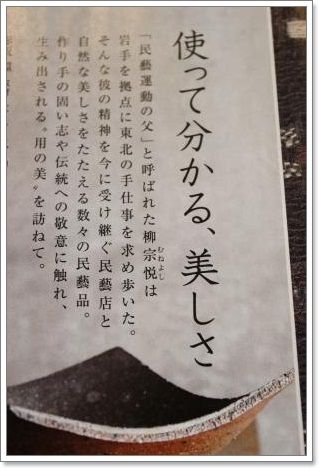 使って分かる、美しさ
「民藝運動の父」と呼ばれた柳宗悦は
むねよし
岩手を拠点に東北の手仕事を求め歩いた。
そんな彼の精神を今に受け継ぐ民藝店と
自然な美しさをたたえる数々の民藝品。
作り手の固い志や伝統への敬意に触れ、
生み出される〝用の美〟を訪ねて。